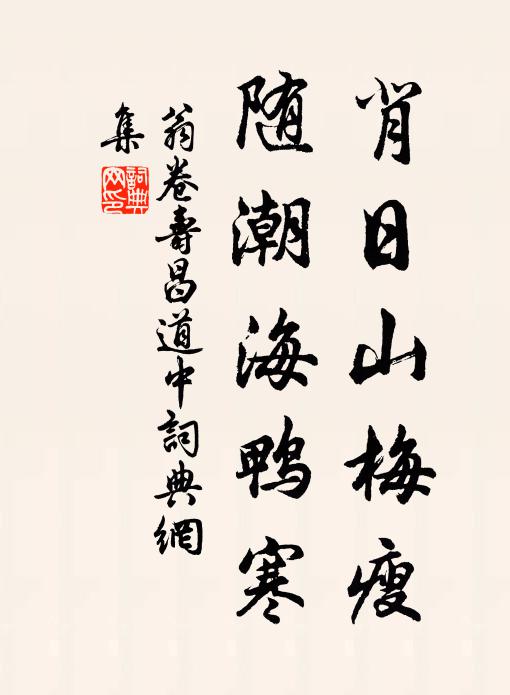 背日山梅瘦
随潮海鸭寒
翁卷壽昌道中詞典網
集
詞典
网印